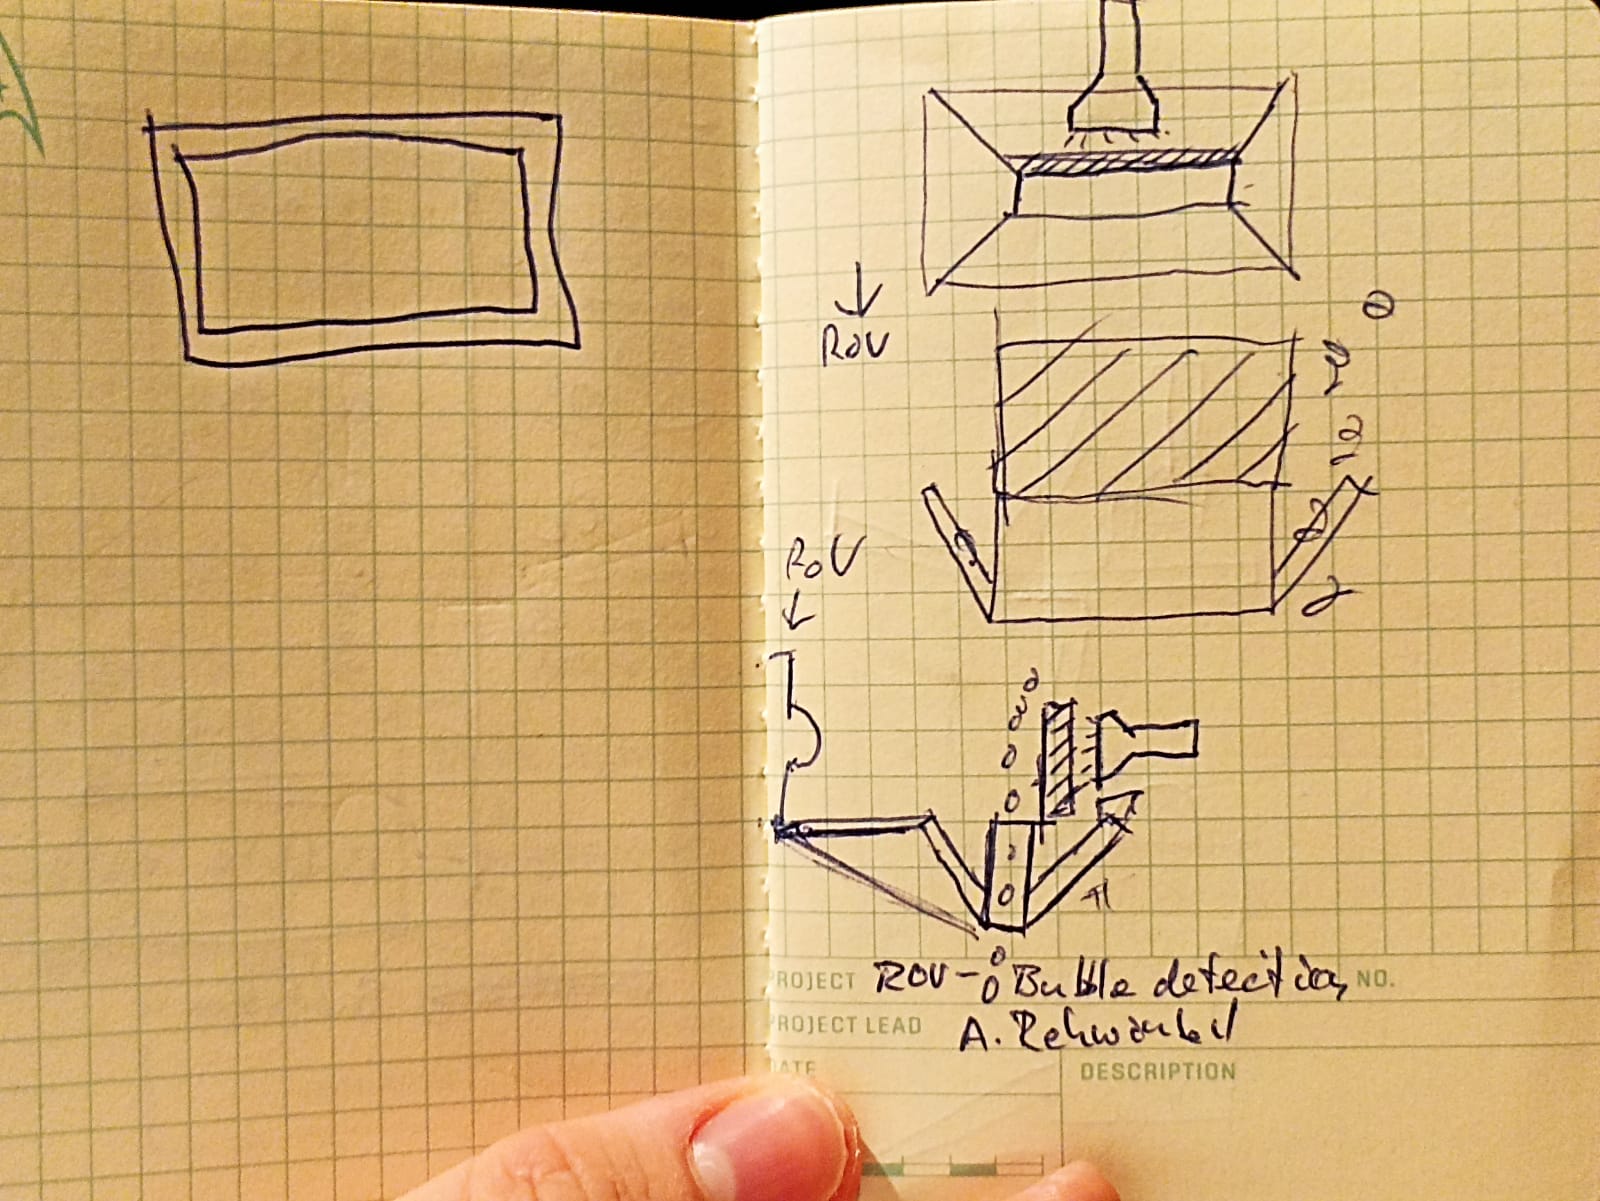 ROV
ROV
PROJECT ROV - Bubble detection, NO.
PROJECT LEAD A.
DATE
DESCRIPTION